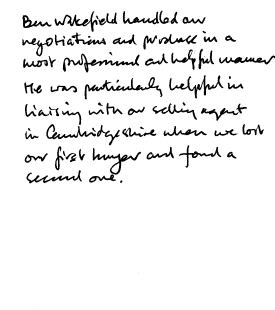 Ben Wakefield handled our
negotiations and purchase in a
most professional and helpful manner
He was particularly helpful in
liaising with our selling agent
in Cambridgeshire when we lost
our first buyer and found a
second one.